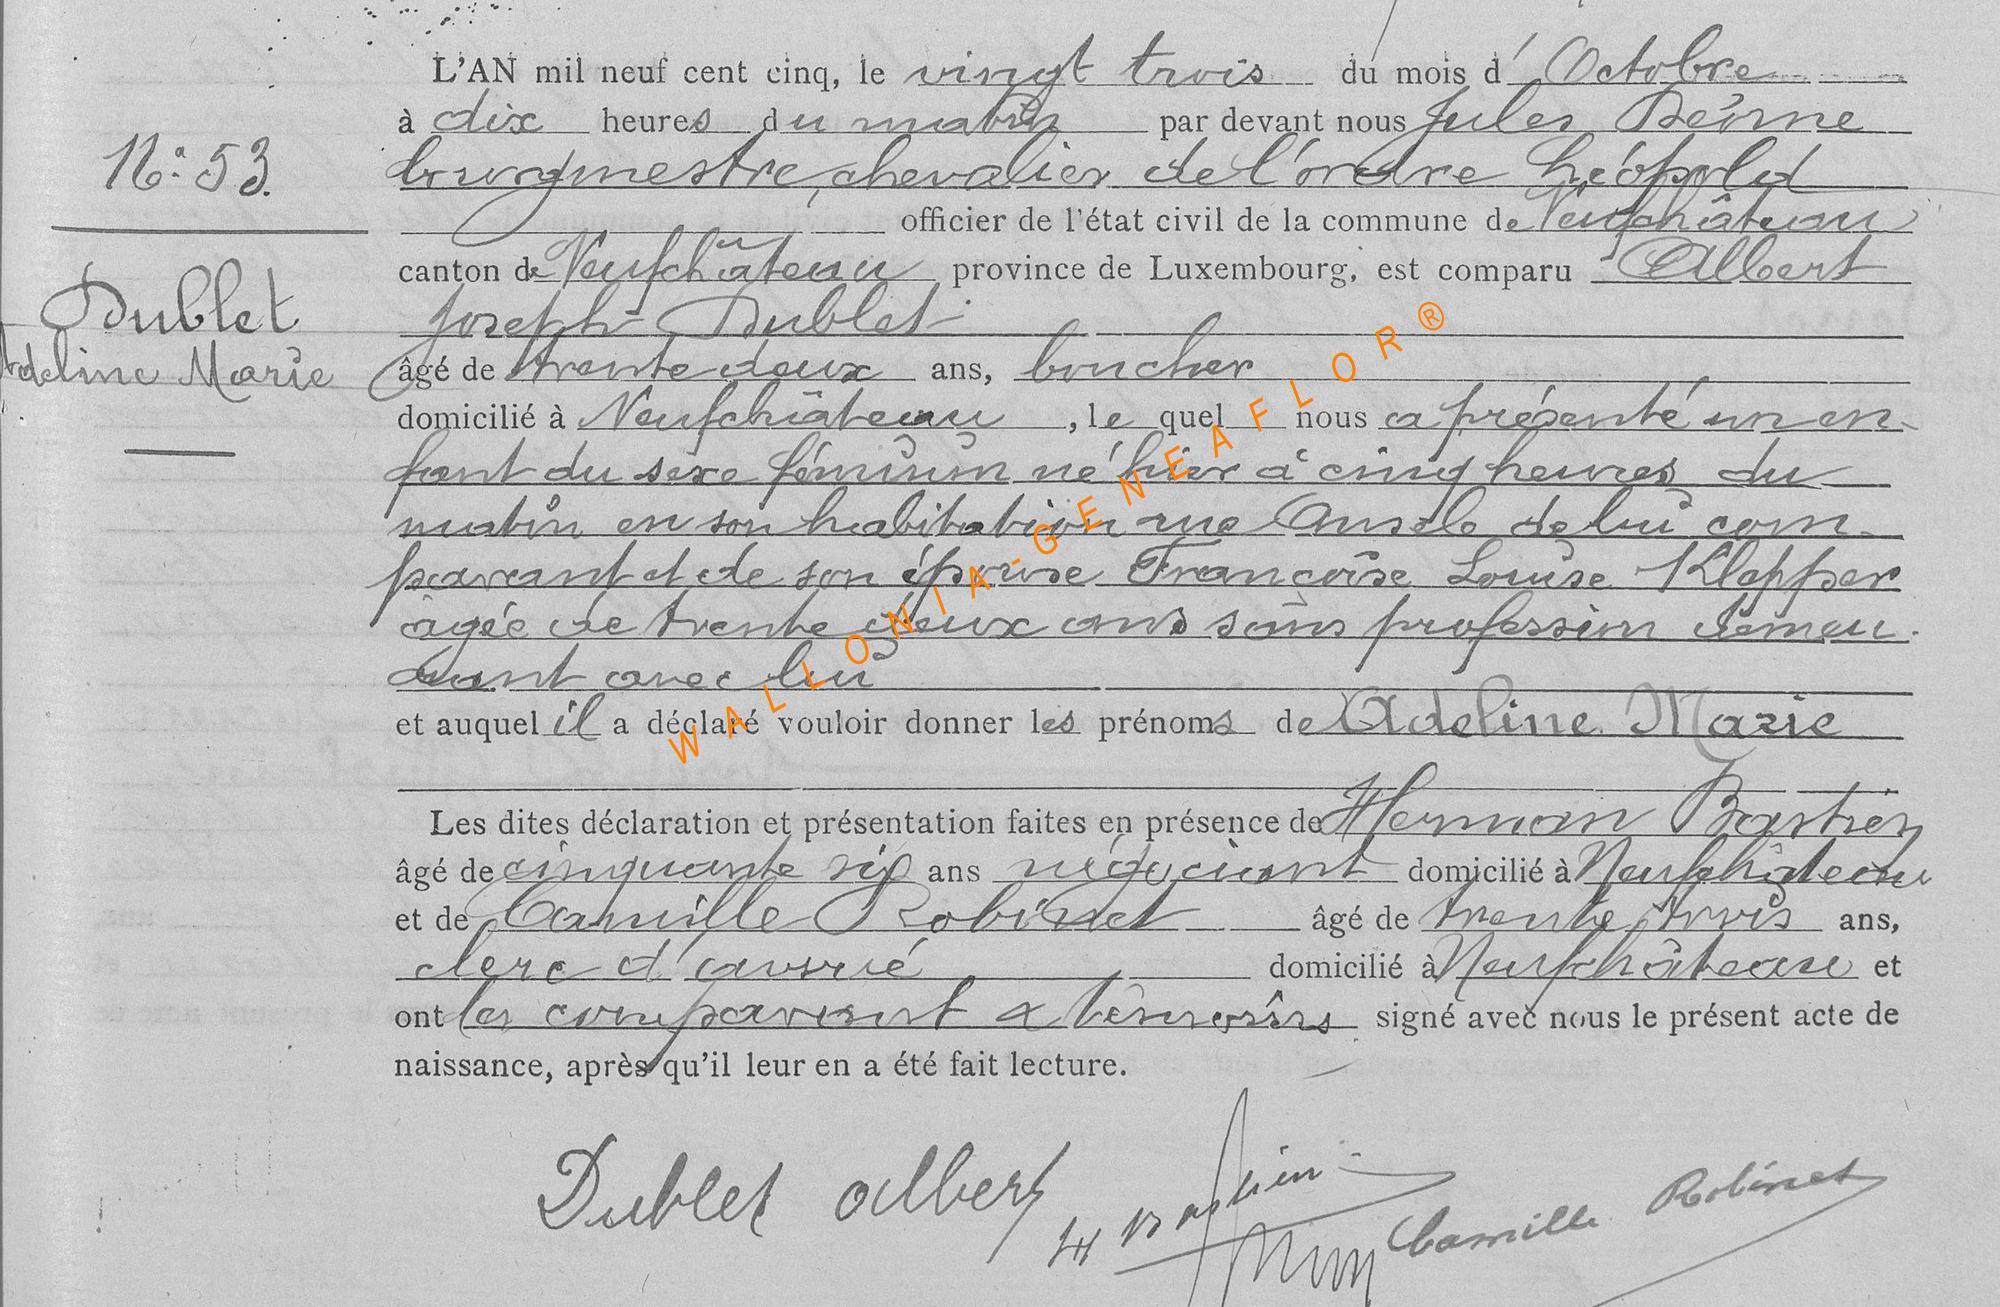 L'AN mil neuf cent cinq, le vingt trois du mois d' Octobre
à dix heures du matin par devant nous Jules
N° 53.
bourgmestre, chevalier de l'ordre Léopold
officier de l'état civil de la commune de Neufchâteau
canton de Neufchâteau province de Luxembourg, est comparu Albert
Dublet
Adeline Marie
Joseph Dublet
âgé de trente deux ans, boucher
domicilié à Neufchâteau, le quel nous a présenté un en-
fant du sexe féminin né hier à cinq heures du
matin en son habitation rue de lui com-
parant et de son épouse Françoise Louise Klepper
âgée de trente deux ans sans profession demeu-
rant avec lui
et auquel il a déclaré vouloir donner les prénoms de Adeline Marie
Les dites déclaration et présentation faites en présence de Herman Bastien
âgé de cinquante six ans négociant domicilié à Neufchâteau
et de Camille Robinet âgé de trente trois ans,
clerc d'avoué domicilié à Neufchâteau et
ont les comparant & témoins signé avec nous le présent acte de
naissance, après qu'il leur en a été fait lecture.
Dublet Albert
H Bastien
Camille Robinet
WALLONIA-GENEAFLOR®